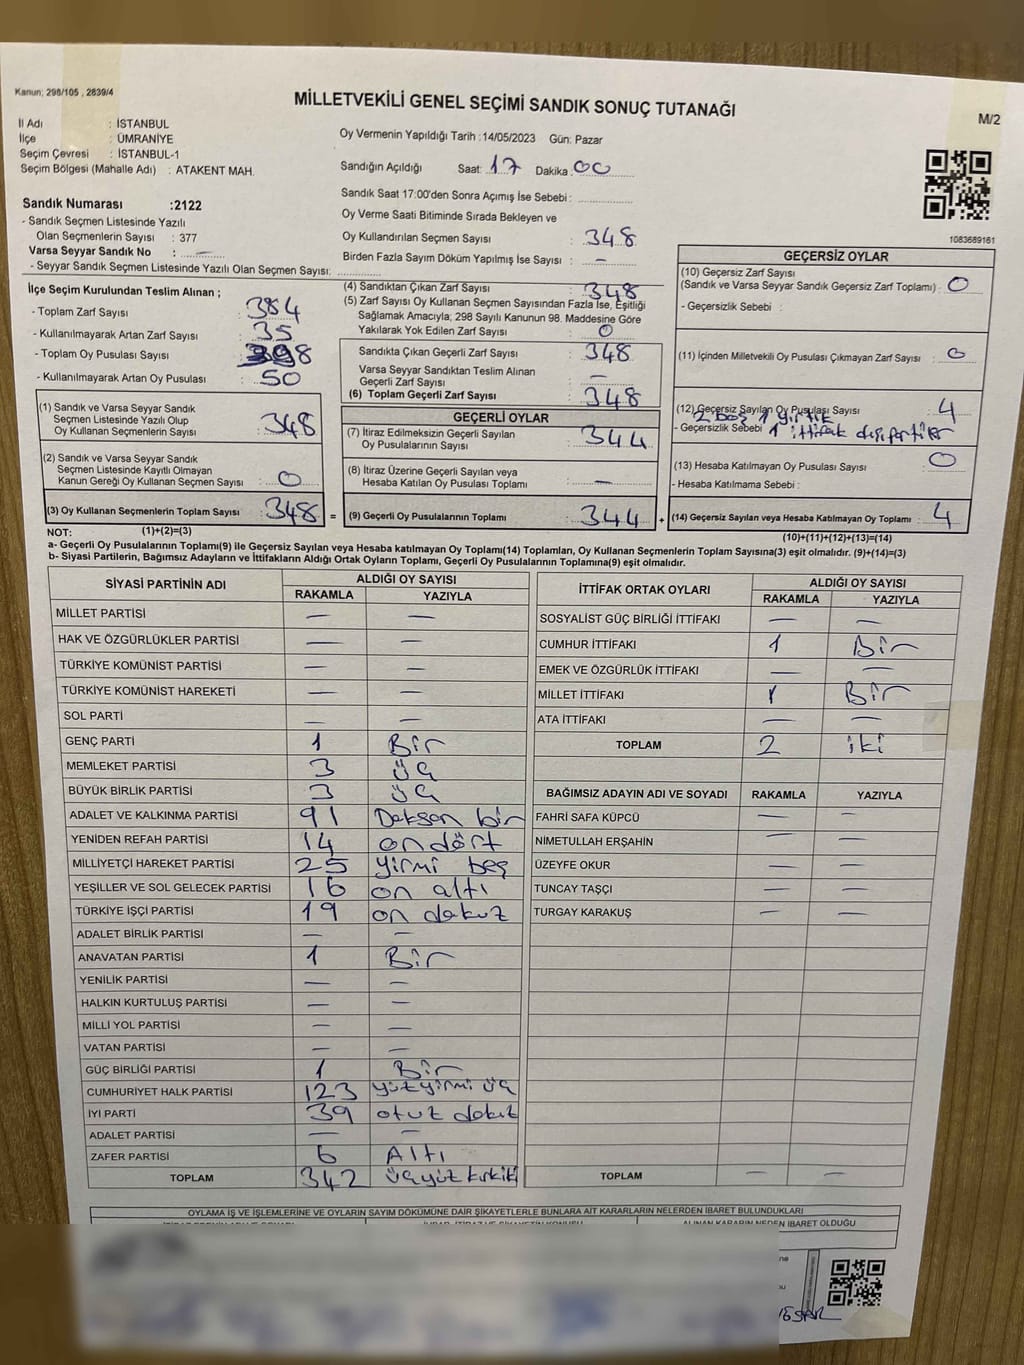 Kanun; 298/105 , 2839/4
MİLLETVEKİLİ GENEL SEÇİMİ SANDIK SONUÇ TUTANAĞI
M/2
İl Adı : İSTANBUL
İlçe : ÜMRANİYE
Seçim Çevresi : İSTANBUL-1
Seçim Bölgesi (Mahalle Adı) : ATAKENT MAH.
Sandık Numarası :2122
- Sandık Seçmen Listesinde Yazılı
Olan Seçmenlerin Sayısı : 377
Varsa Seyyar Sandık No : —
- Seyyar Sandık Seçmen Listesinde Yazılı Olan Seçmen Sayısı:
Oy Vermenin Yapıldığı Tarih :14/05/2023 Gün: Pazar
Sandığın Açıldığı Saat: 17 Dakika : 00
Sandık Saat 17:00'den Sonra Açımış İse Sebebi :
Oy Verme Saati Bitiminde Sırada Bekleyen ve
Oy Kullandırılan Seçmen Sayısı : 348
Birden Fazla Sayım Döküm Yapılmış İse Sayısı : —
1083689161
İlçe Seçim Kurulundan Teslim Alınan ;
- Toplam Zarf Sayısı : 384
- Kullanılmayarak Artan Zarf Sayısı : 35
- Toplam Oy Pusulası Sayısı : 398
- Kullanılmayarak Artan Oy Pusulası : 50
(1) Sandık ve Varsa Seyyar Sandık
Seçmen Listesinde Yazılı Olup
Oy Kullanan Seçmenlerin Sayısı : 348
(2) Sandık ve Varsa Seyyar Sandık
Seçmen Listesinde Kayıtlı Olmayan
Kanun Gereği Oy Kullanan Seçmen Sayısı : 0
(3) Oy Kullanan Seçmenlerin Toplam Sayısı : 348 =
(4) Sandıktan Çıkan Zarf Sayısı : 348
(5) Zarf Sayısı Oy Kullanan Seçmen Sayısından Fazla İse, Eşitliği
Sağlamak Amacıyla; 298 Sayılı Kanunun 98. Maddesine Göre
Yakılarak Yok Edilen Zarf Sayısı : 0
Sandıkta Çıkan Geçerli Zarf Sayısı : 348
Varsa Seyyar Sandıktan Teslim Alınan
Geçerli Zarf Sayısı : —
(6) Toplam Geçerli Zarf Sayısı : 348
GEÇERLİ OYLAR
(7) İtiraz Edilmeksizin Geçerli Sayılan
Oy Pusulalarının Sayısı : 344
(8) İtiraz Üzerine Geçerli Sayılan veya
Hesaba Katılan Oy Pusulası Toplamı : —
(9) Geçerli Oy Pusulalarının Toplamı : 344 +
GEÇERSİZ OYLAR
(10) Geçersiz Zarf Sayısı
(Sandık ve Varsa Seyyar Sandık Geçersiz Zarf Toplamı) : 0
- Geçersizlik Sebebi :
(11) İçinden Milletvekili Oy Pusulası Çıkmayan Zarf Sayısı : 0
(12) Geçersiz Sayılan Oy Pusulası Sayısı : 4
2 boş 1 yırtık
- Geçersizlik Sebebi 1 ittifak dışı partiler
(13) Hesaba Katılmayan Oy Pusulası Sayısı : 0
- Hesaba Katılmama Sebebi :
(14) Geçersiz Sayılan veya Hesaba Katılmayan Oy Toplamı : 4
NOT: (1)+(2)=(3)
(10)+(11)+(12)+(13)=(14)
a- Geçerli Oy Pusulalarının Toplamı(9) ile Geçersiz Sayılan veya Hesaba katılmayan Oy Toplamı(14) Toplamları, Oy Kullanan Seçmenlerin Toplam Sayısına(3) eşit olmalıdır. (9)+(14)=(3)
b- Siyasi Partilerin, Bağımsız Adayların ve İttifakların Aldığı Ortak Oyların Toplamı, Geçerli Oy Pusulalarının Toplamına(9) eşit olmalıdır.
SİYASİ PARTİNİN ADI ALDIĞI OY SAYISI
RAKAMLA YAZIYLA
MİLLET PARTİSİ — —
HAK VE ÖZGÜRLÜKLER PARTİSİ — —
TÜRKİYE KOMÜNİST PARTİSİ — —
TÜRKİYE KOMÜNİST HAREKETİ — —
SOL PARTİ — —
GENÇ PARTİ 1 Bir
MEMLEKET PARTİSİ 3 üç
BÜYÜK BİRLİK PARTİSİ 3 üç
ADALET VE KALKINMA PARTİSİ 91 Doksan bir
YENİDEN REFAH PARTİSİ 14 on dört
MİLLİYETÇİ HAREKET PARTİSİ 25 yirmi beş
YEŞİLLER VE SOL GELECEK PARTİSİ 16 on altı
TÜRKİYE İŞÇİ PARTİSİ 19 on dokuz
ADALET BİRLİK PARTİSİ — —
ANAVATAN PARTİSİ 1 Bir
YENİLİK PARTİSİ — —
HALKIN KURTULUŞ PARTİSİ — —
MİLLİ YOL PARTİSİ — —
VATAN PARTİSİ — —
GÜÇ BİRLİĞİ PARTİSİ 1 Bir
CUMHURİYET HALK PARTİSİ 123 yüzyirmi üç
İYİ PARTİ 39 otuz dokuz
ADALET PARTİSİ — —
ZAFER PARTİSİ 6 Altı
TOPLAM 342 üçyüz kırkiki
İTTİFAK ORTAK OYLARI ALDIĞI OY SAYISI
RAKAMLA YAZIYLA
SOSYALİST GÜÇ BİRLİĞİ İTTİFAKI — —
CUMHUR İTTİFAKI 1 Bir
EMEK VE ÖZGÜRLÜK İTTİFAKI — —
MİLLET İTTİFAKI 1 Bir
ATA İTTİFAKI — —
TOPLAM 2 iki
BAĞIMSIZ ADAYIN ADI VE SOYADI RAKAMLA YAZIYLA
FAHRİ SAFA KÜPCÜ — —
NİMETULLAH ERŞAHİN — —
ÜZEYFE OKUR — —
TUNCAY TAŞÇI — —
TURGAY KARAKUŞ — —
TOPLAM — —
OYLAMA İŞ VE İŞLEMLERİNE VE OYLARIN SAYIM DÖKÜMÜNE DAİR ŞİKAYETLERLE BUNLARA AİT KARARLARIN NELERDEN İBARET BULUNDUKLARI
ALINAN KARARIN NEDEN İBARET OLDUĞU